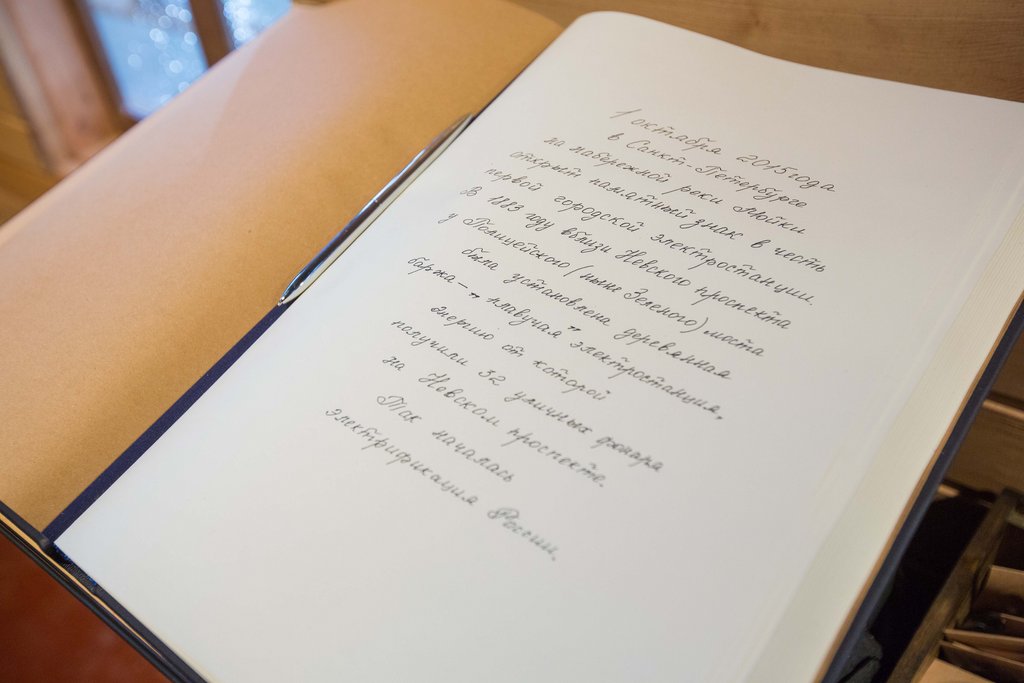 1 октября 2015 года
в Санкт-Петербурге
на набережной реки Мойки
открыт памятный знак в честь
первой городской электростанции.
В 1883 году вблизи Невского проспекта
у Полицейского (ныне Зеленого) моста
была установлена деревянная
баржа – „плавучая" электростанция,
энергию от которой
получили 32 уличных фонаря
на Невском проспекте.
Так началась
электрификация России.